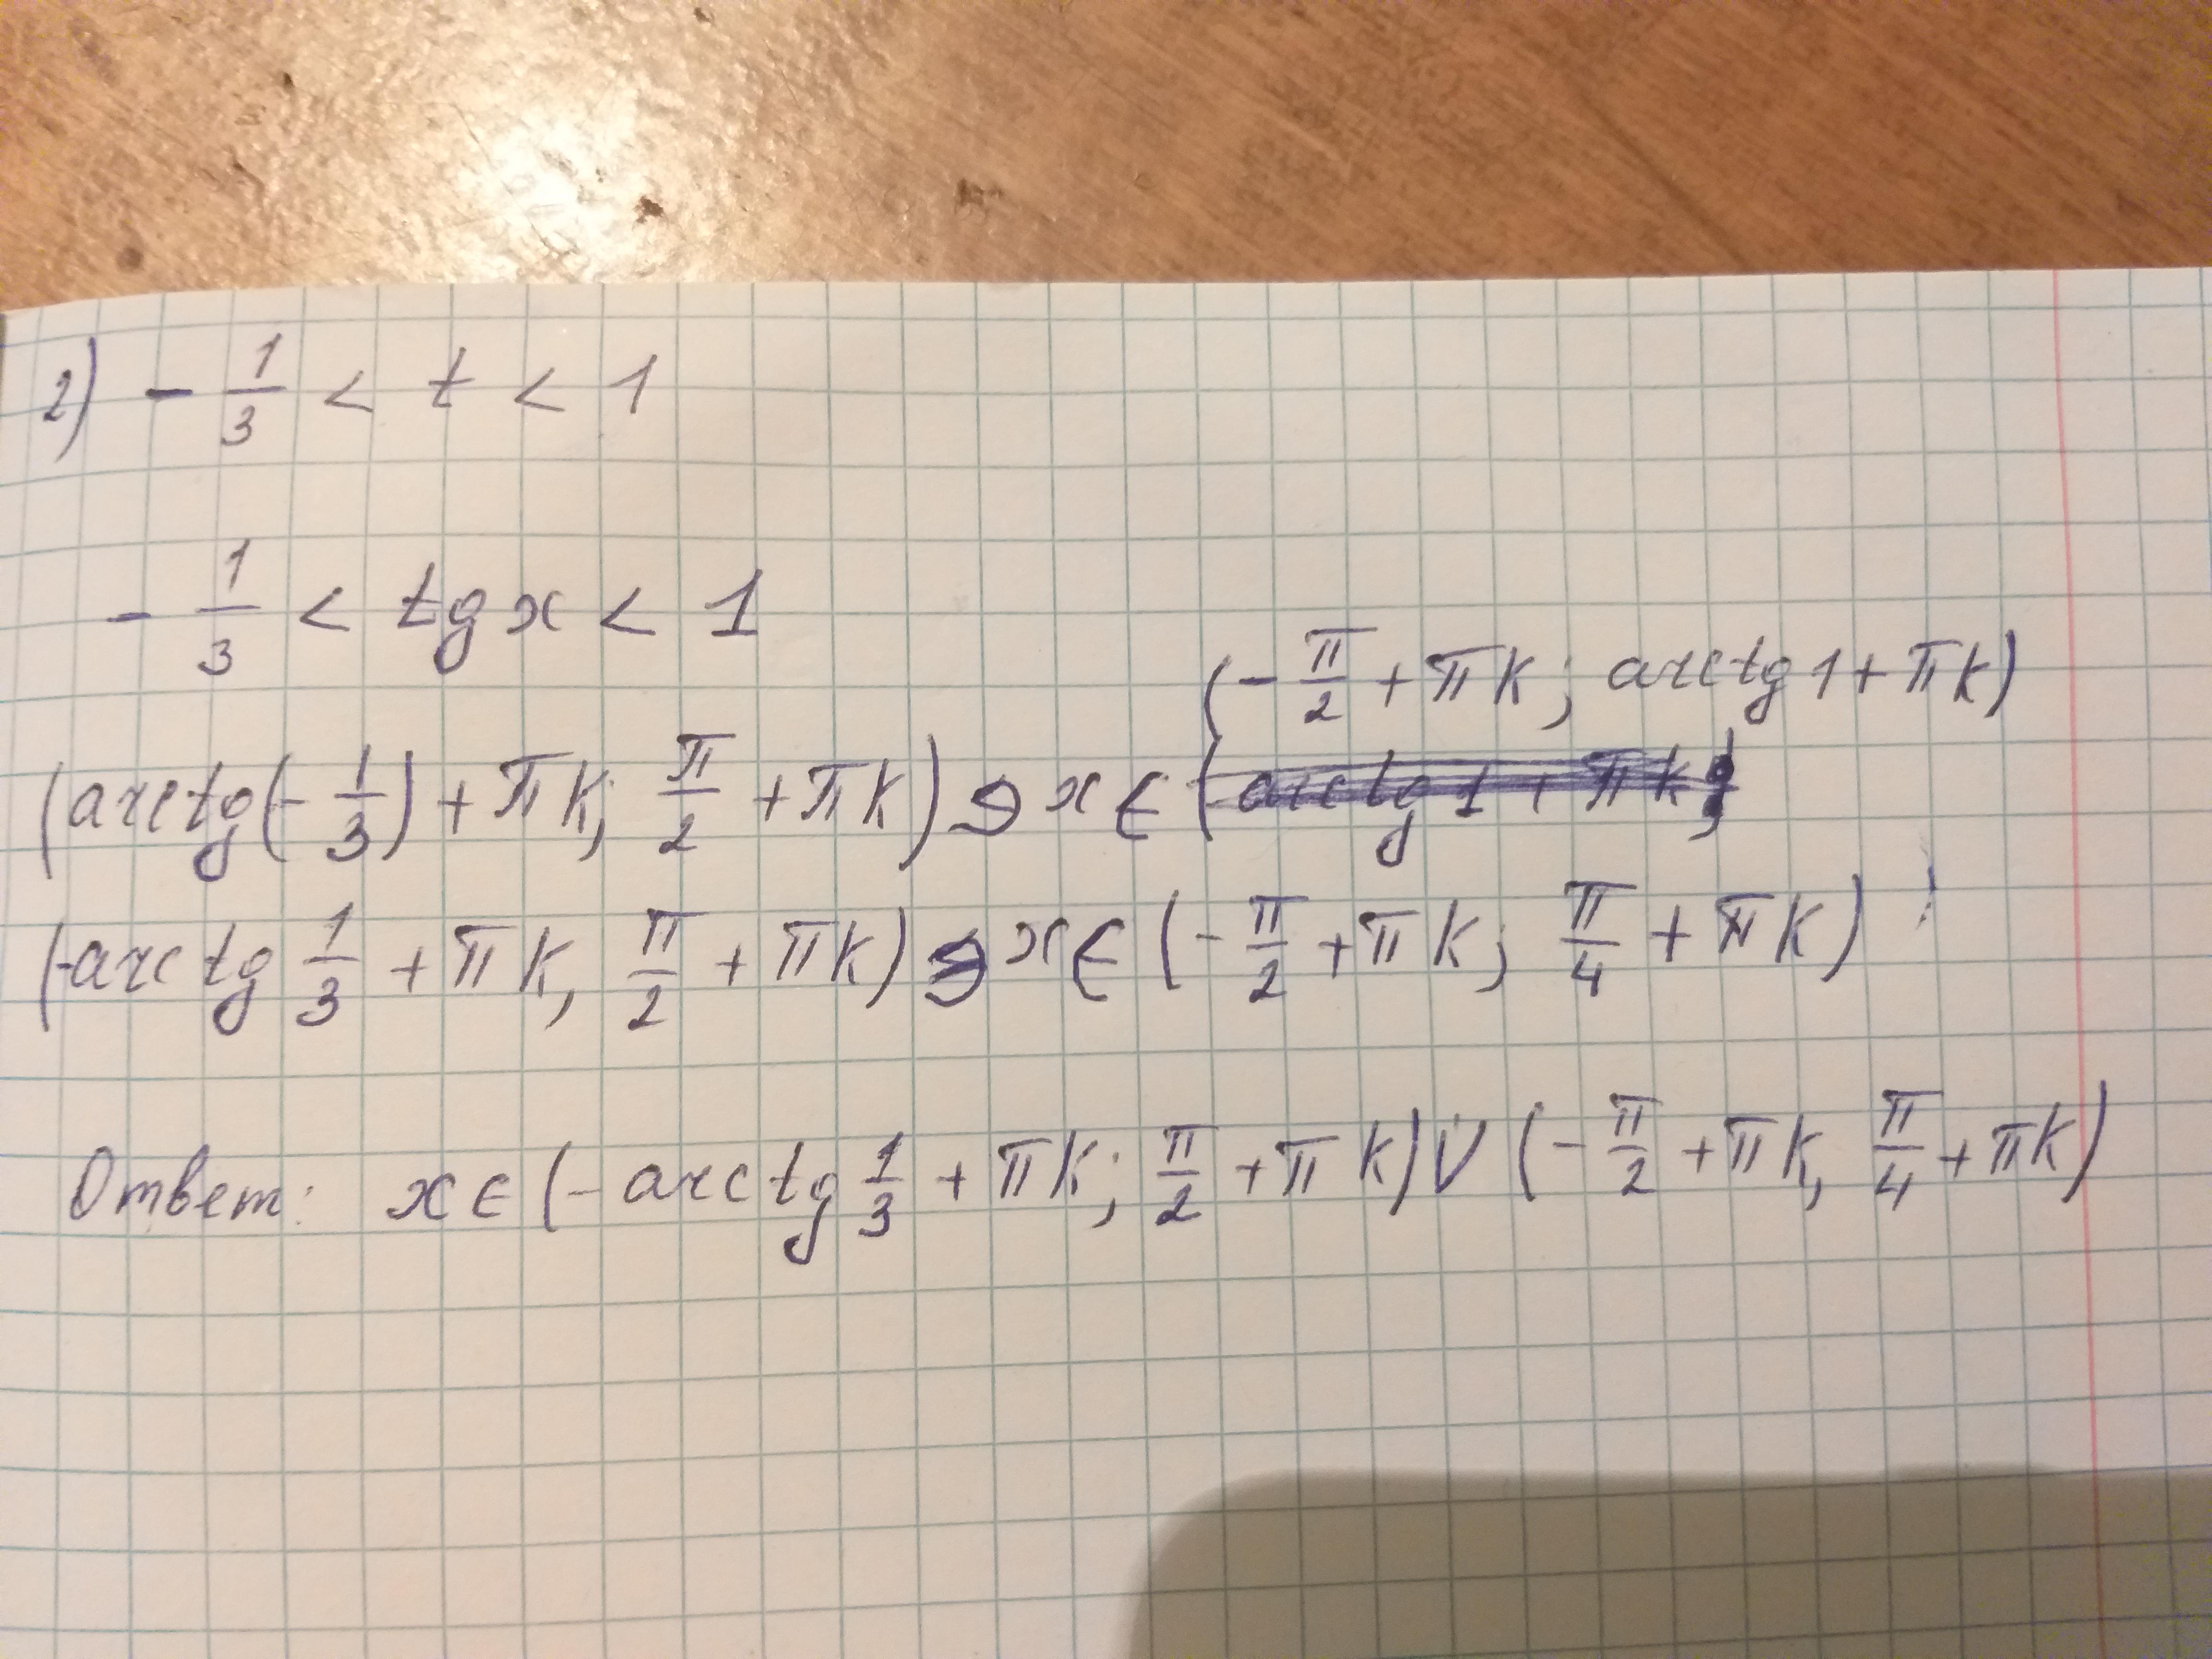 2) - 1/3 < t < 1
- 1/3 < tg x < 1
(-π/2 + πk; arctg 1 + πk)
(arctg(-1/3) + πk; π/2 + πk) ∍ x ∈ (arctg 1 + πk;
(-arctg 1/3 + πk, π/2 + πk) ∍ x ∈ (-π/2 + πk; π/4 + πk)
Ответ: x ∈ (-arctg 1/3 + πk; π/2 + πk) ∪ (-π/2 + πk, π/4 + πk)